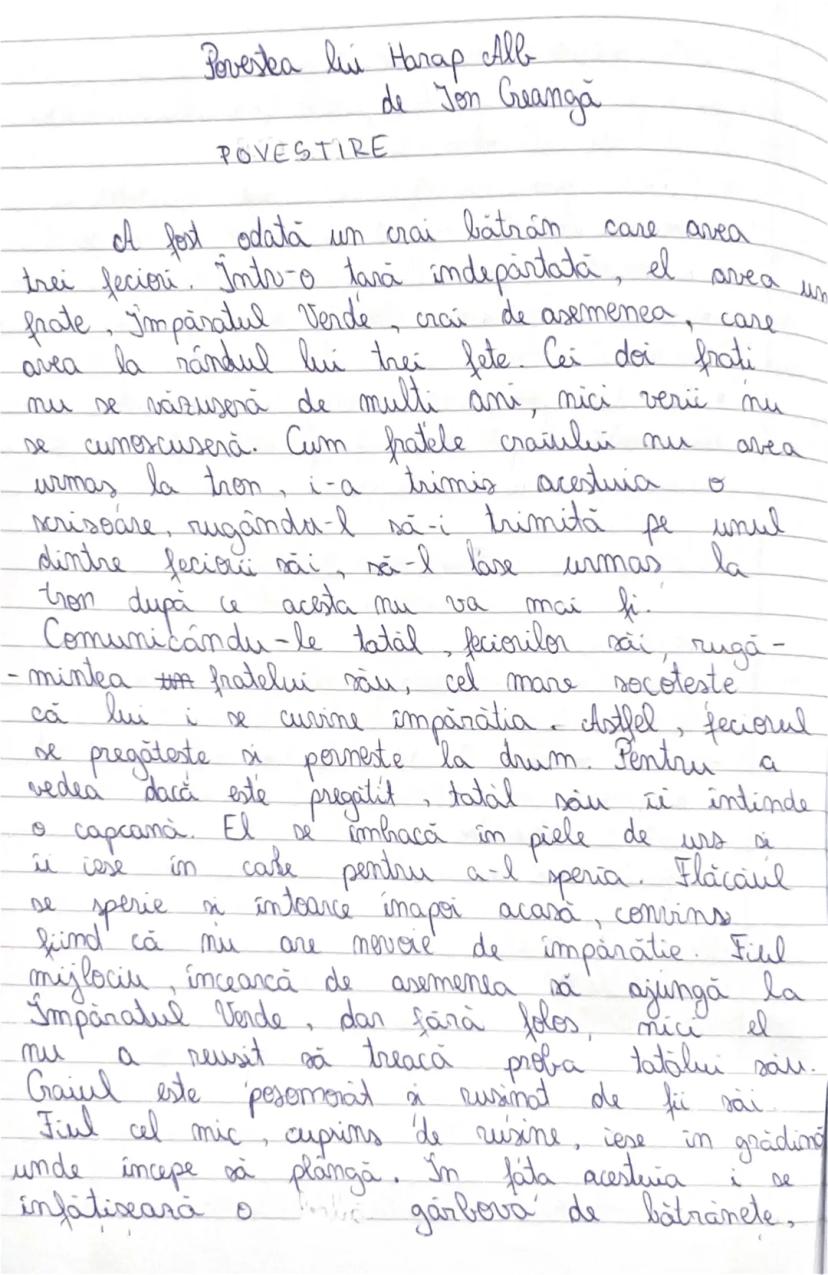 Povestea lui Harap Alb
de Ion Creangă
POVESTIRE
A fost odată un crai bătrân care avea
trei feciori. Într-o tară indepărtată, el avea un
frate, Împăratul Verde, crai de asemenea, care
avea la rândul lui trei fete. Cei doi frati
nu se văzuseră de multi ani, nici verii nu
se cunoscuseră. Cum fratele craiului nu avea
urmas la tron, i-a trimis acestuia o
scrisoare, rugându-l să-i trimită pe unul
dintre feciorii săi, să-l lase urmas la
tron după ce acesta nu va mai fi.
Comunicându-le tatăl, feciorilor săi, rugă-
-mintea fratelui său, cel mare socoteste
că lui i se cuvine împărătia. Astfel, feciorul
se pregăteste si porneste la drum. Pentru a
vedea dacă este pregătit, tatăl său îi întinde
o capcană. El se îmbracă în piele de urs si
îi iese în cale pentru a-l speria. Flăcăul
se sperie si întoarce înapoi acasă, convins
fiind că nu are nevoie de împărătie. Fiul
mijlociu, încearcă de asemenea să ajungă la
Împăratul Verde, dar fără folos, nici el
nu a reusit să treacă proba tatălui său.
Craiul este posomorât si rusinat de fii săi.
Fiul cel mic, cuprins de rusine, iese în grădină
unde începe să plângă. În fata acestuia i se
înfătisează o gârbovă de bătrânete,